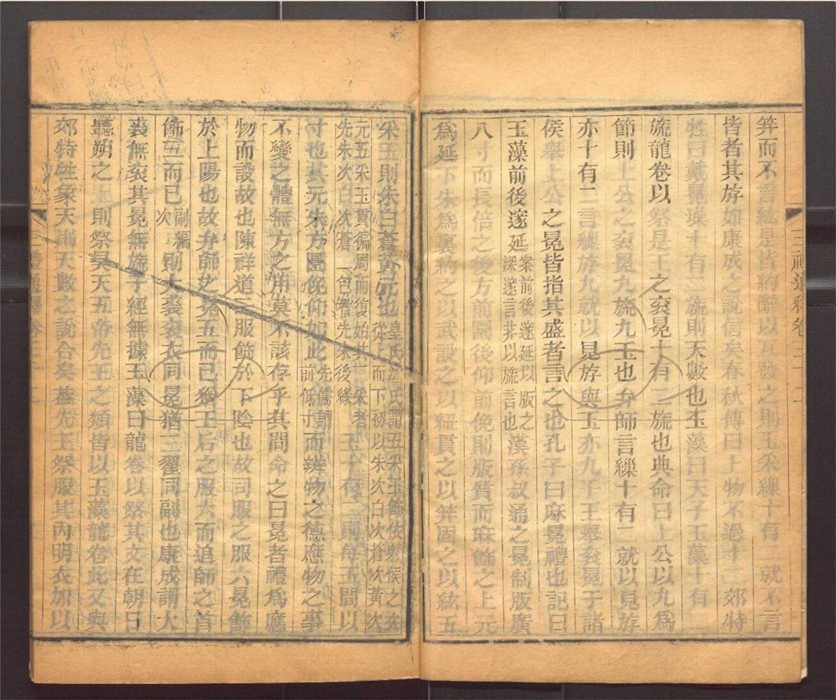 筓而不言紘是皆約辭以互發之則玉采繅十有二就不言
皆者其斿如康成之說信矣春秋傳曰上物不過十二郊特
牲曰戴冕璪十有二旒則天數也玉藻曰天子玉藻十有二
旒龍卷以祭是王之衮冕十有二旒也典命曰上公以九爲
節則上公之衮冕九旒九玉也弁師言繅十有二就以見斿
亦十有二言繅斿九就以見斿與玉亦九于王舉衮冕于諸
侯舉上公之冕皆指其盛者言之也孔子曰麻冕禮也記曰
玉藻前後邃延案前後邃延以版之深邃言非以旒言也漢孫叔通之冕制版廣
八寸而長倍之後方前圓後仰前俛則版質而麻飾之上元
爲延下朱爲裏約之以武設之以紐貫之以筓固之以紘五
采玉則朱白蒼黃元也皇氏沈氏謂五采玉飾依射侯之次從上而下初以朱次白次蒼次黃次
元五采玉貫徧周而復始其三采者先朱次白次蒼二色者先朱後綠玉十有二則每玉間以
寸也其元朱方圓俛仰如此先儒謂前低寸而辨物之德應物之事
不變之體無方之用莫不該存乎其間命之曰冕者禮爲應
物而設故也陳祥道三服飾於下陰也故司服之服六冕飾
於上陽也故弁師之冕五而已猶王后之服六而追師之首
飾三而已副編次則大裘衮衣同冕猶三翟同副也康成謂大
裘無衮其冕無旒于經無據玉藻曰龍卷以祭其文在朝日
聽朔之上則祭昊天五帝先王之類皆以玉藻龍卷此又與
郊特牲象天則天數之說合矣蓋先王祭服其內明衣加以